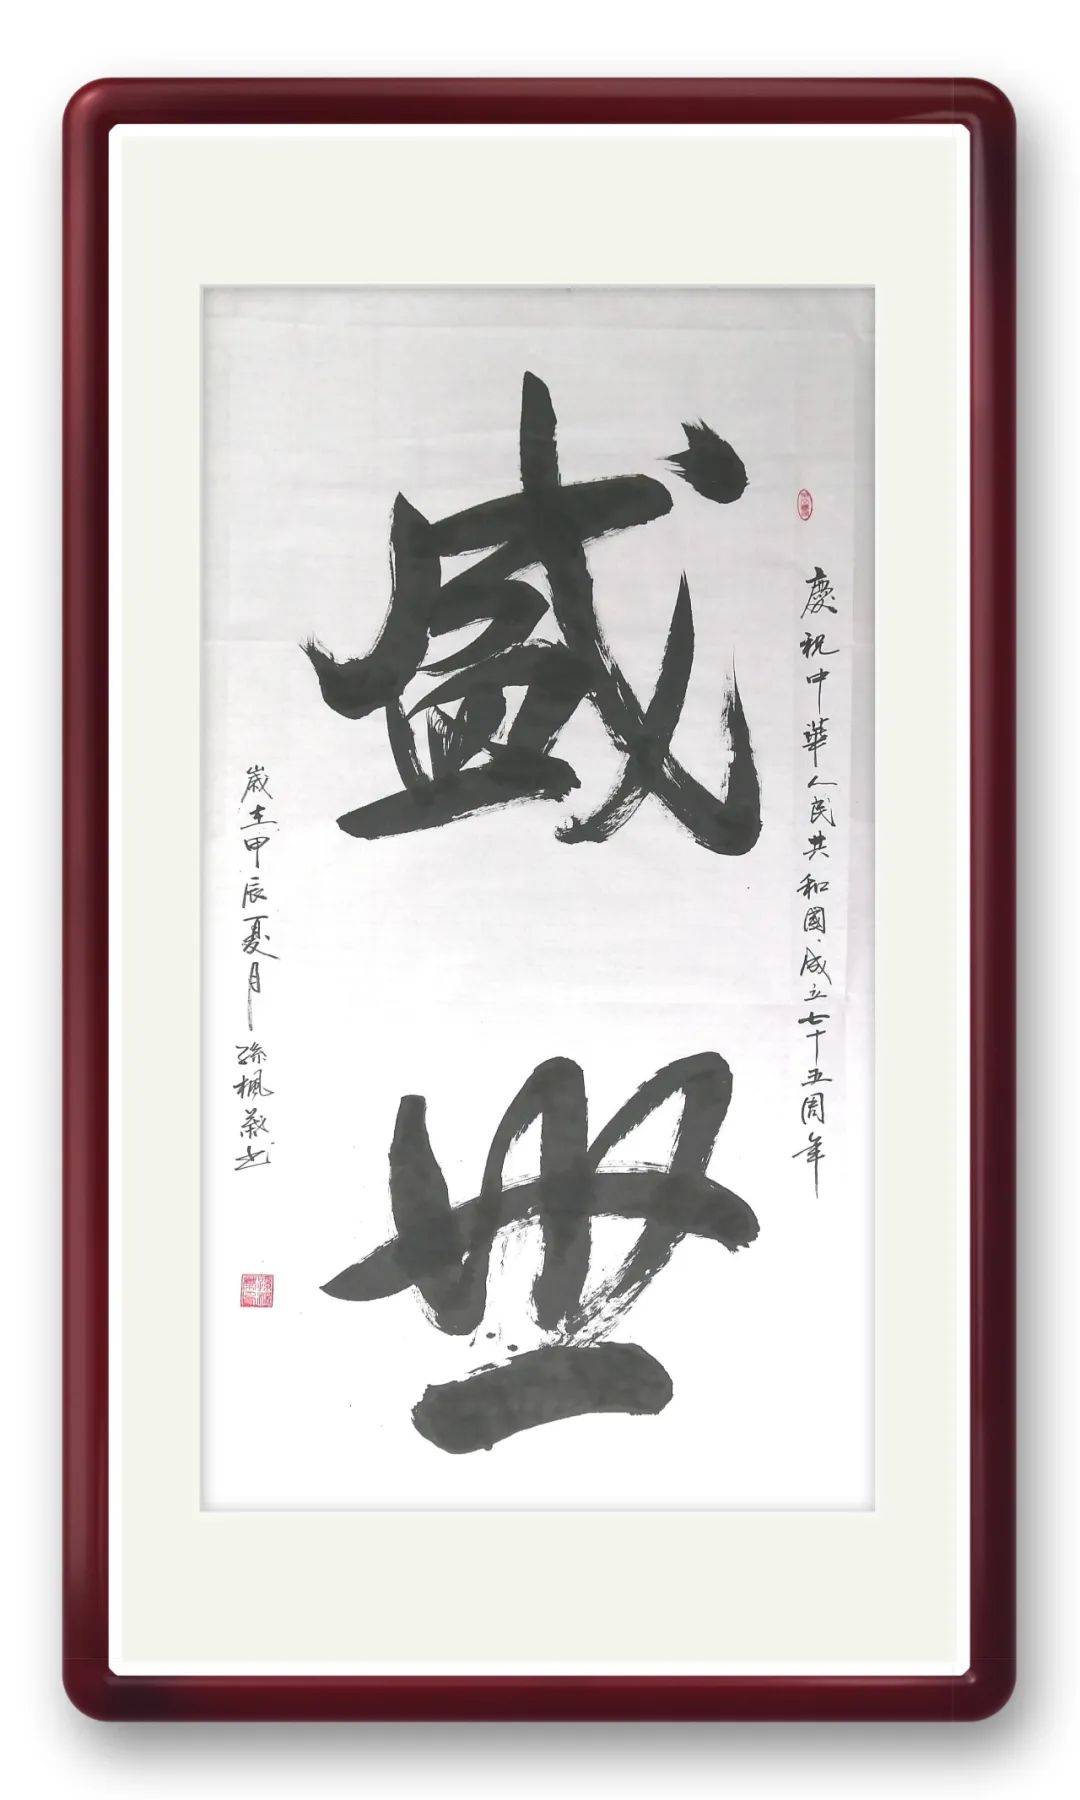 盛世
慶祝中華人民共和國成立七十五周年
歲在甲辰夏月孫楓菽书